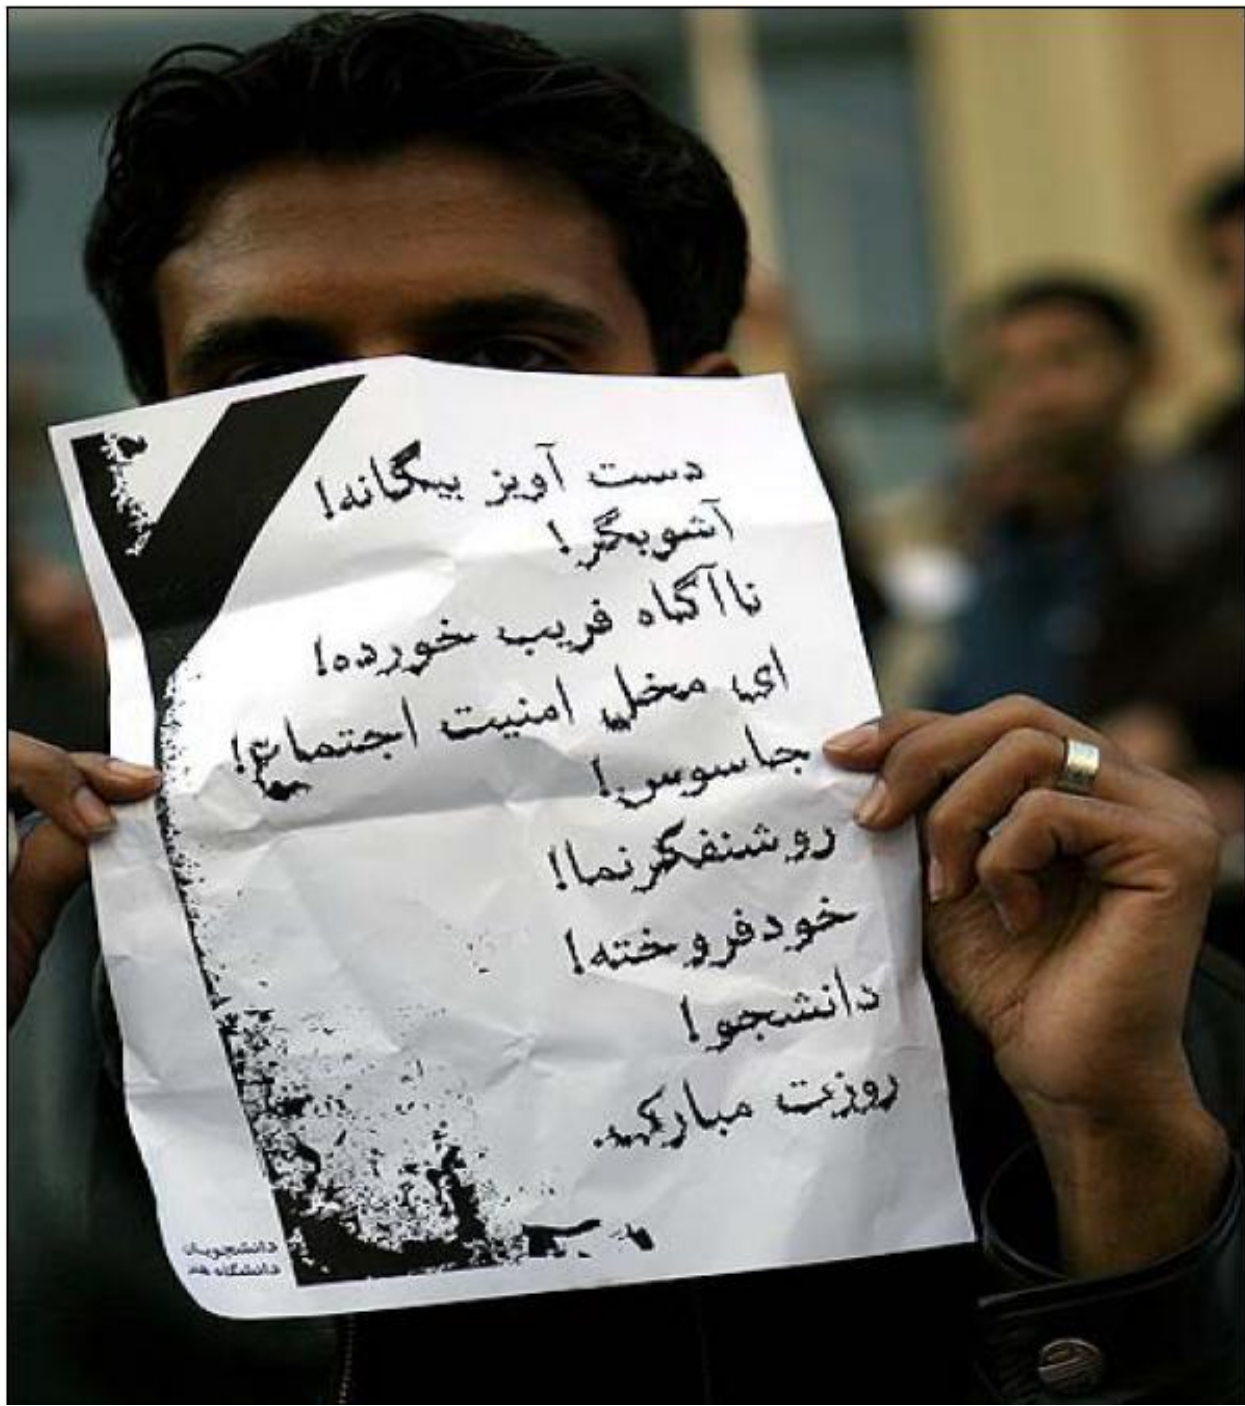 دست آویز بیگانه!
آشوبگر!
ناآگاه فریب خورده!
ای مخل امنیت اجتماعی!
جاسوس!
روشنفکرنما!
خودفروخته!
دانشجو!
روزت مبارک.
دانشجویان
دانشگاه هنر